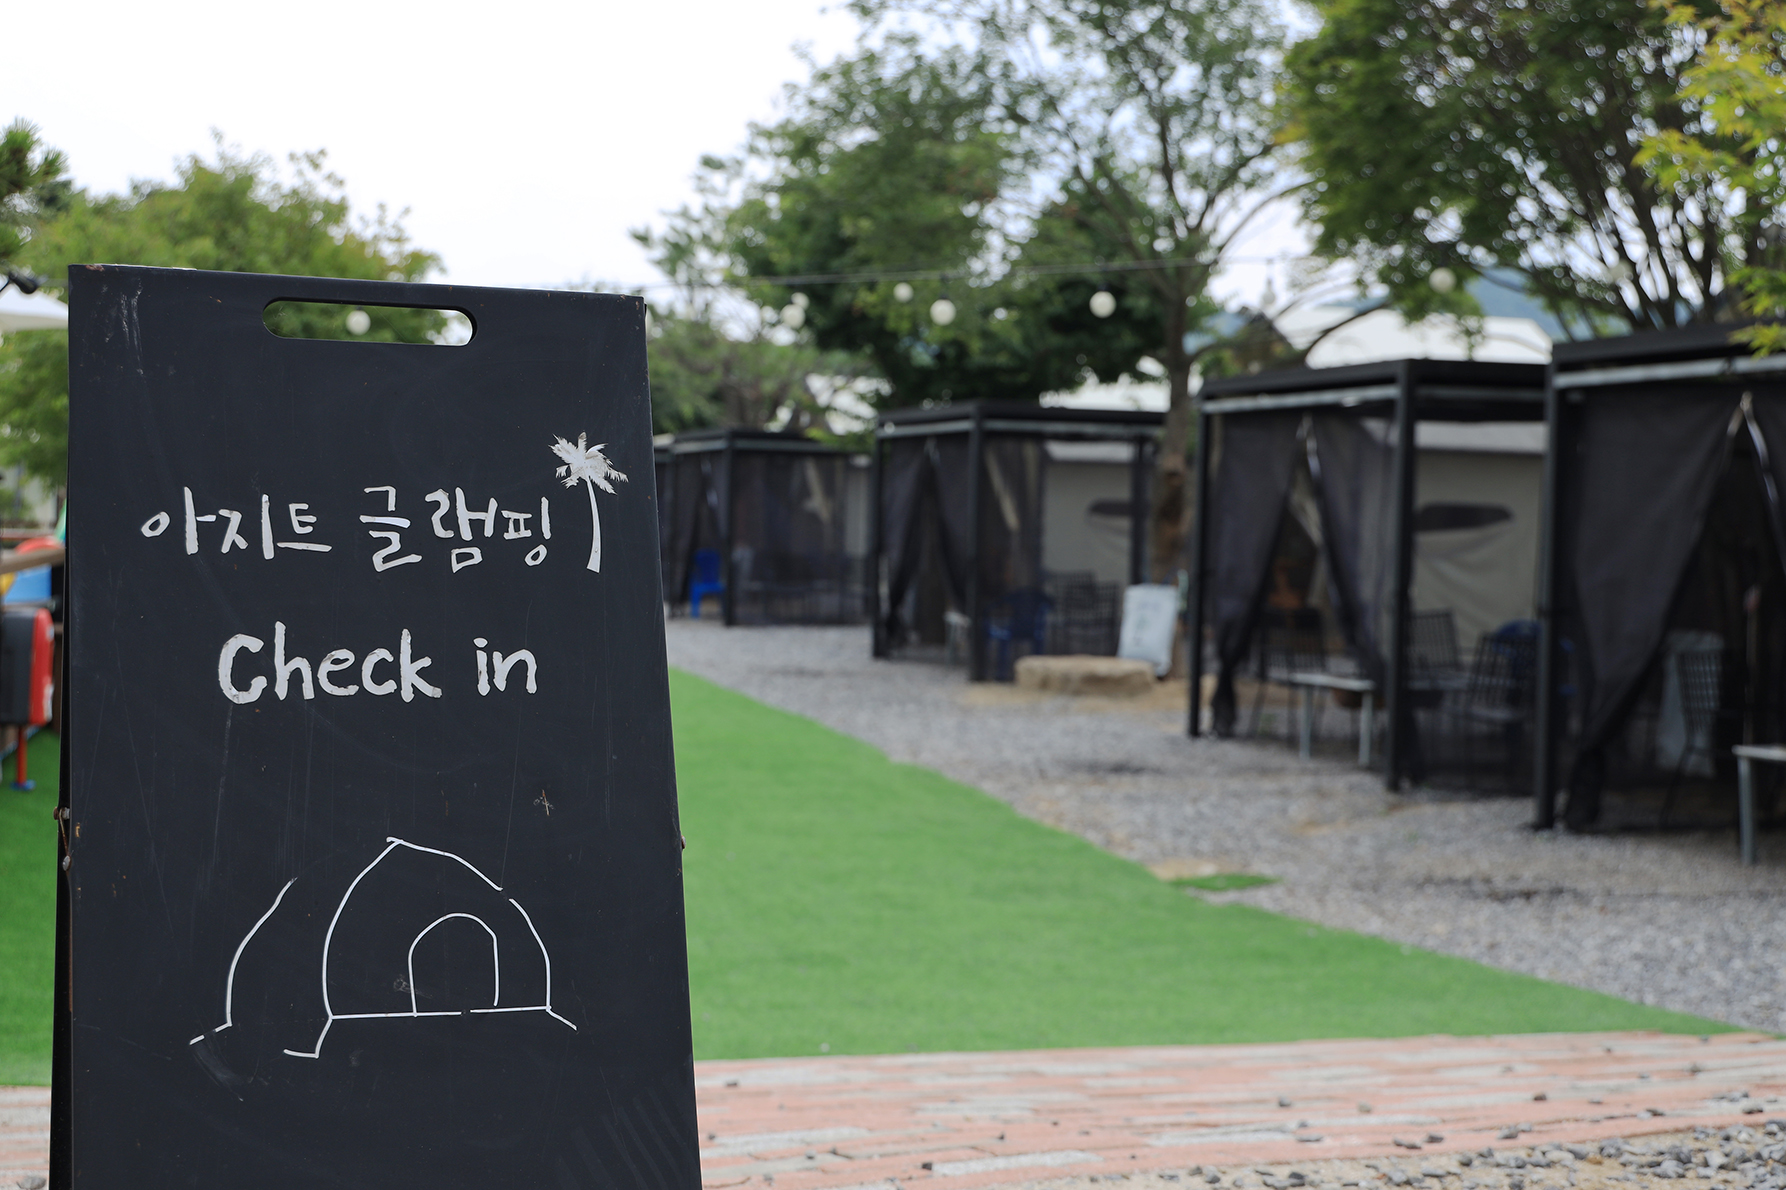 아지트 글램핑
Check in